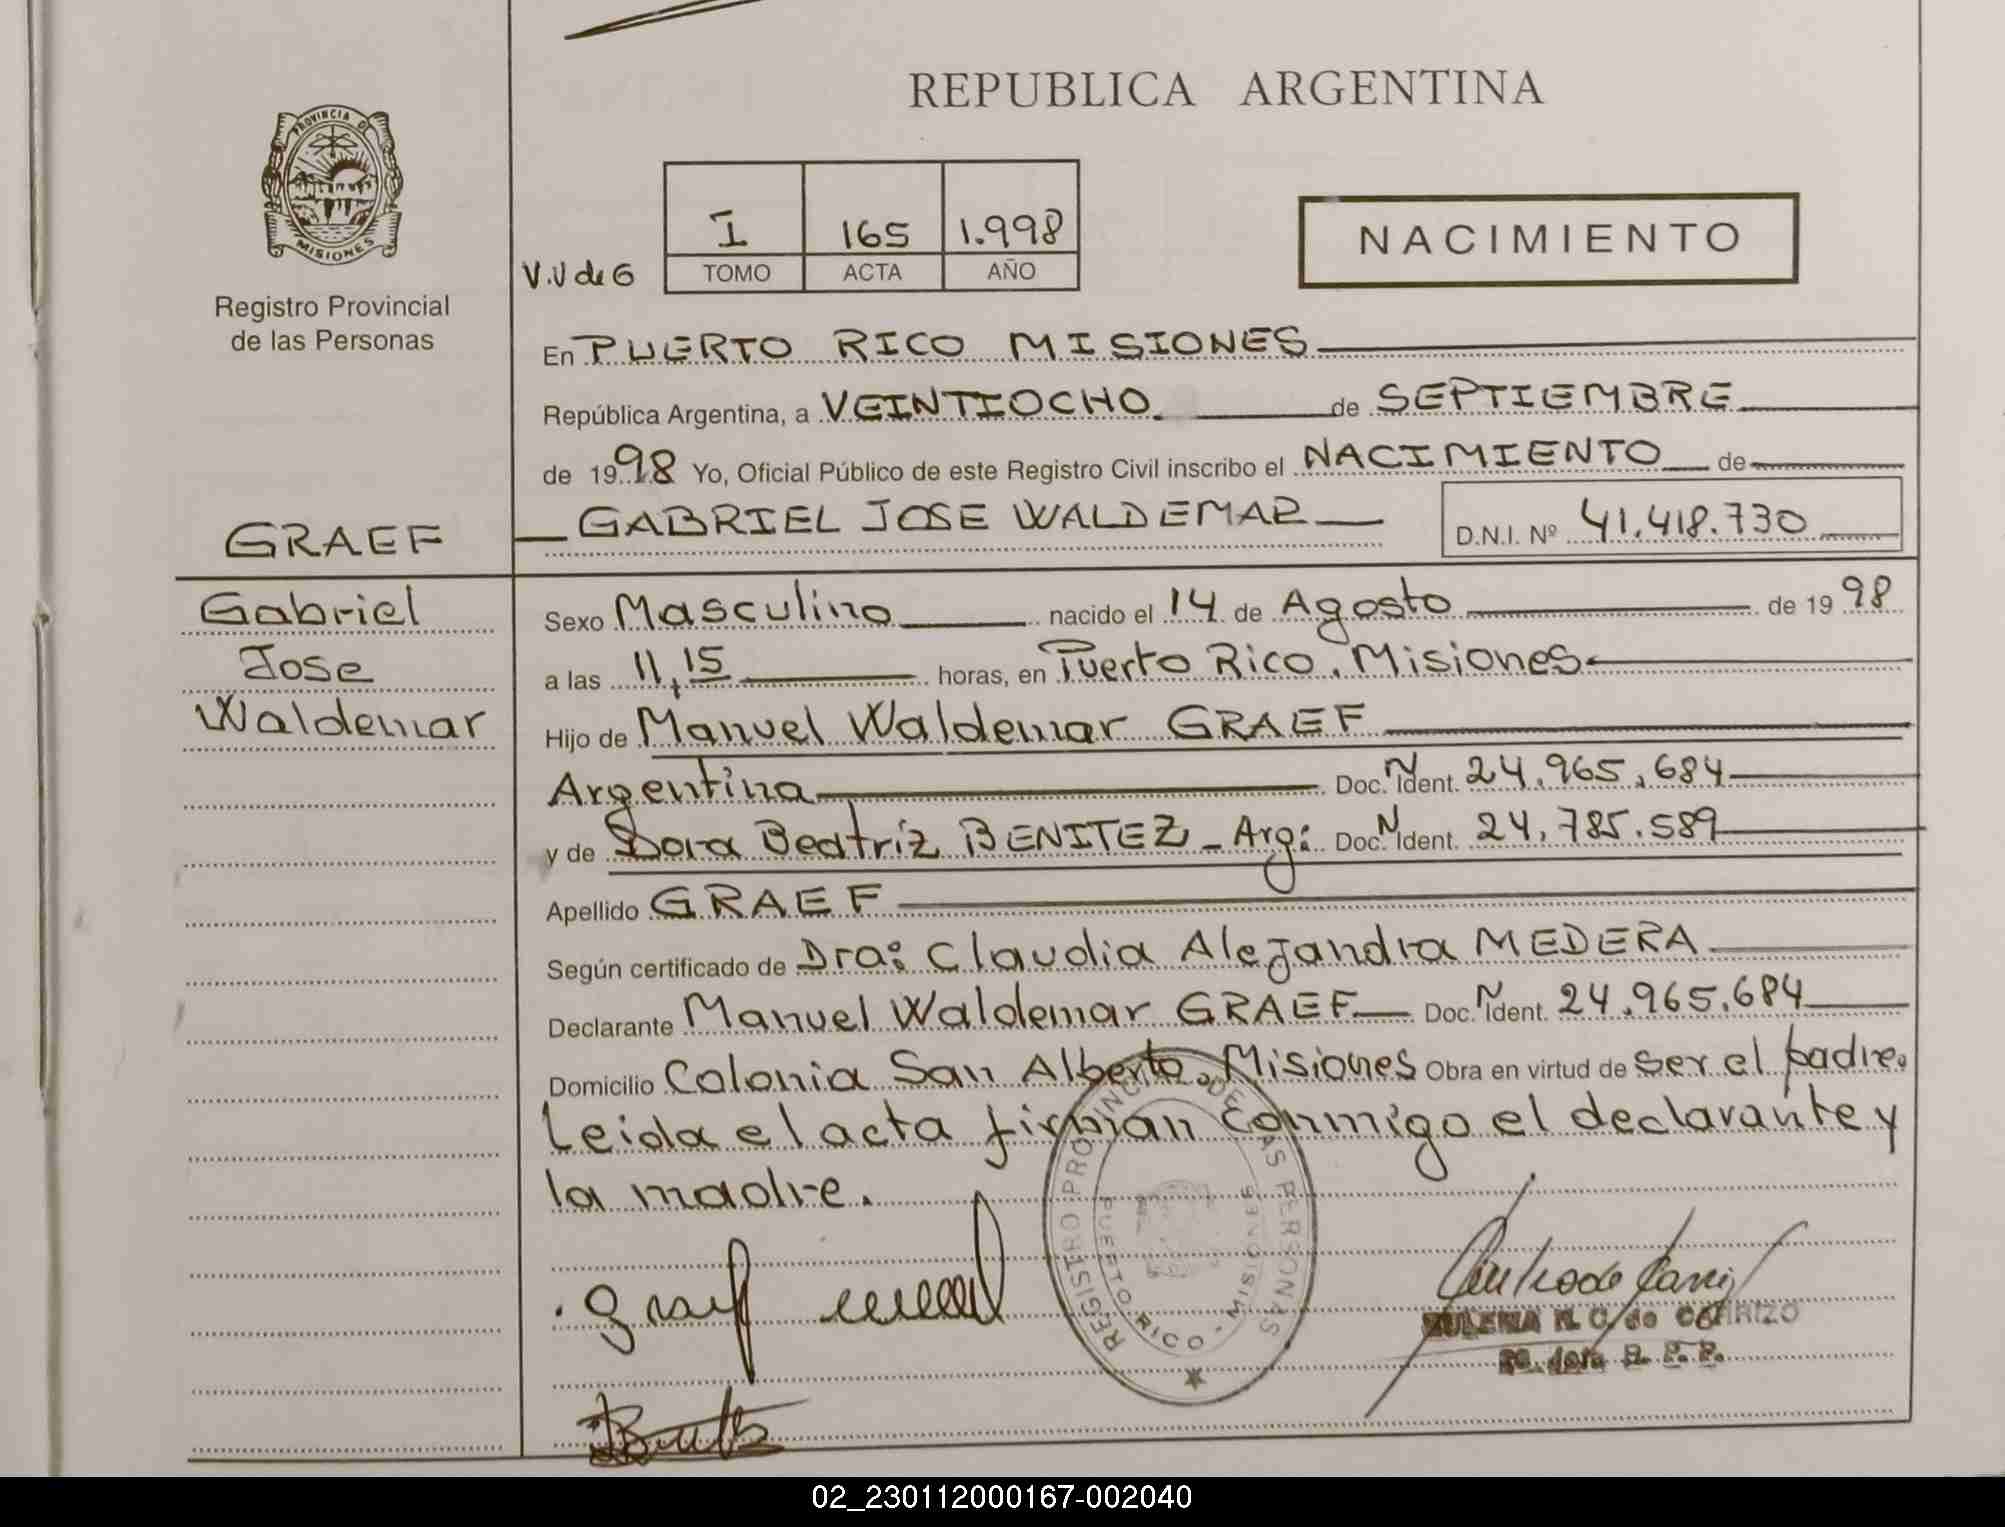 REPUBLICA ARGENTINA
PROVINCIA DE
MISIONES
Registro Provincial
de las Personas
V.V de G
I 165 1.998
TOMO ACTA AÑO
NACIMIENTO
En PUERTO RICO MISIONES
República Argentina, a VEINTIOCHO. de SEPTIEMBRE
de 1998 Yo, Oficial Público de este Registro Civil inscribo el NACIMIENTO de
GABRIEL JOSE WALDEMAR D.N.I. Nº 41.418.730
GRAEF
Gabriel
Jose
Waldemar
Sexo Masculino nacido el 14 de Agosto de 1998
a las 11,15 horas, en Puerto Rico, Misiones
Hijo de Manuel Waldemar GRAEF
Argentina Doc. N Ident. 24.965.684
y de Dora Beatriz BENITEZ - Arg: Doc. N Ident. 24.785.589
Apellido GRAEF
Según certificado de Dra: Claudia Alejandra MEDERA
Declarante Manuel Waldemar GRAEF Doc. N Ident. 24.965.684
Domicilio Colonia San Alberto, Misiones Obra en virtud de ser el padre.
Leida el acta firman conmigo el declarante y
la madre.
graef
REGISTRO PROVINCIAL DE LAS PERSONAS
PUERTO RICO - MISIONES
de CARRIZO
R. P. P.
02_230112000167-002040